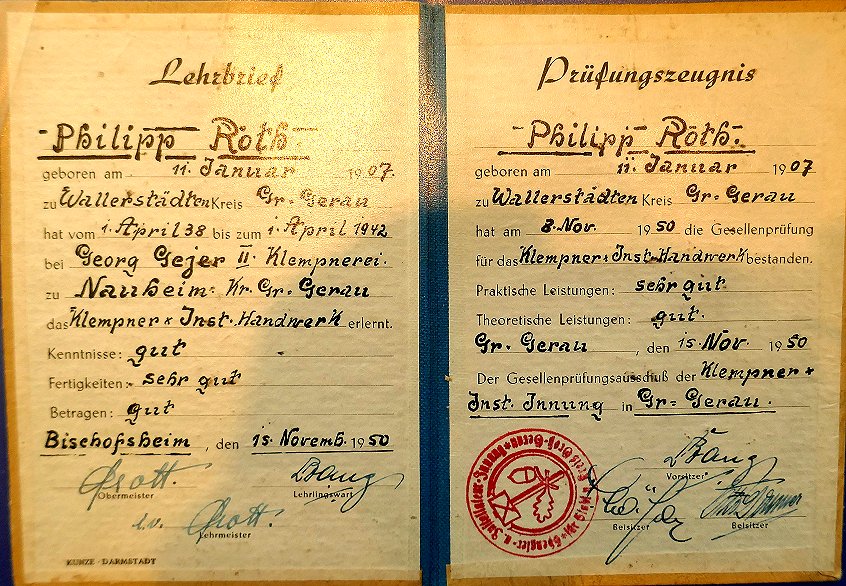 Lehrbrief
-Philipp Roth.-
geboren am 11. Januar 1907.
zu Wallerstädten Kreis Gr. Gerau
hat vom 1. April 38 bis zum 1. April 1942
bei Georg Gejer II. Klempnerei.
zu Nauheim: Kr. Gr. Gerau
das Klempner & Inst. Handwerk erlernt.
Kenntnisse: gut
Fertigkeiten: sehr gut
Betragen: gut
Bischofsheim, den 15. Novemb. 1950
Obermeister Lehrlingswart
i.v.
Lehrmeister
KUNZE - DARMSTADT
Prüfungszeugnis
-Philipp Roth.-
geboren am 11. Januar 1907
zu Wallerstädten Kreis Gr. Gerau
hat am 8. Nov. 1950 die Gesellenprüfung
für das Klempner & Inst. Handwerk bestanden.
Praktische Leistungen: sehr gut
Theoretische Leistungen: gut.
Gr. Gerau, den 15. Nov. 1950
Der Gesellenprüfungsausschuß der Klempner &
Inst. Innung in Gr= Gerau.
Vorsitzer
Beisitzer Beisitzer